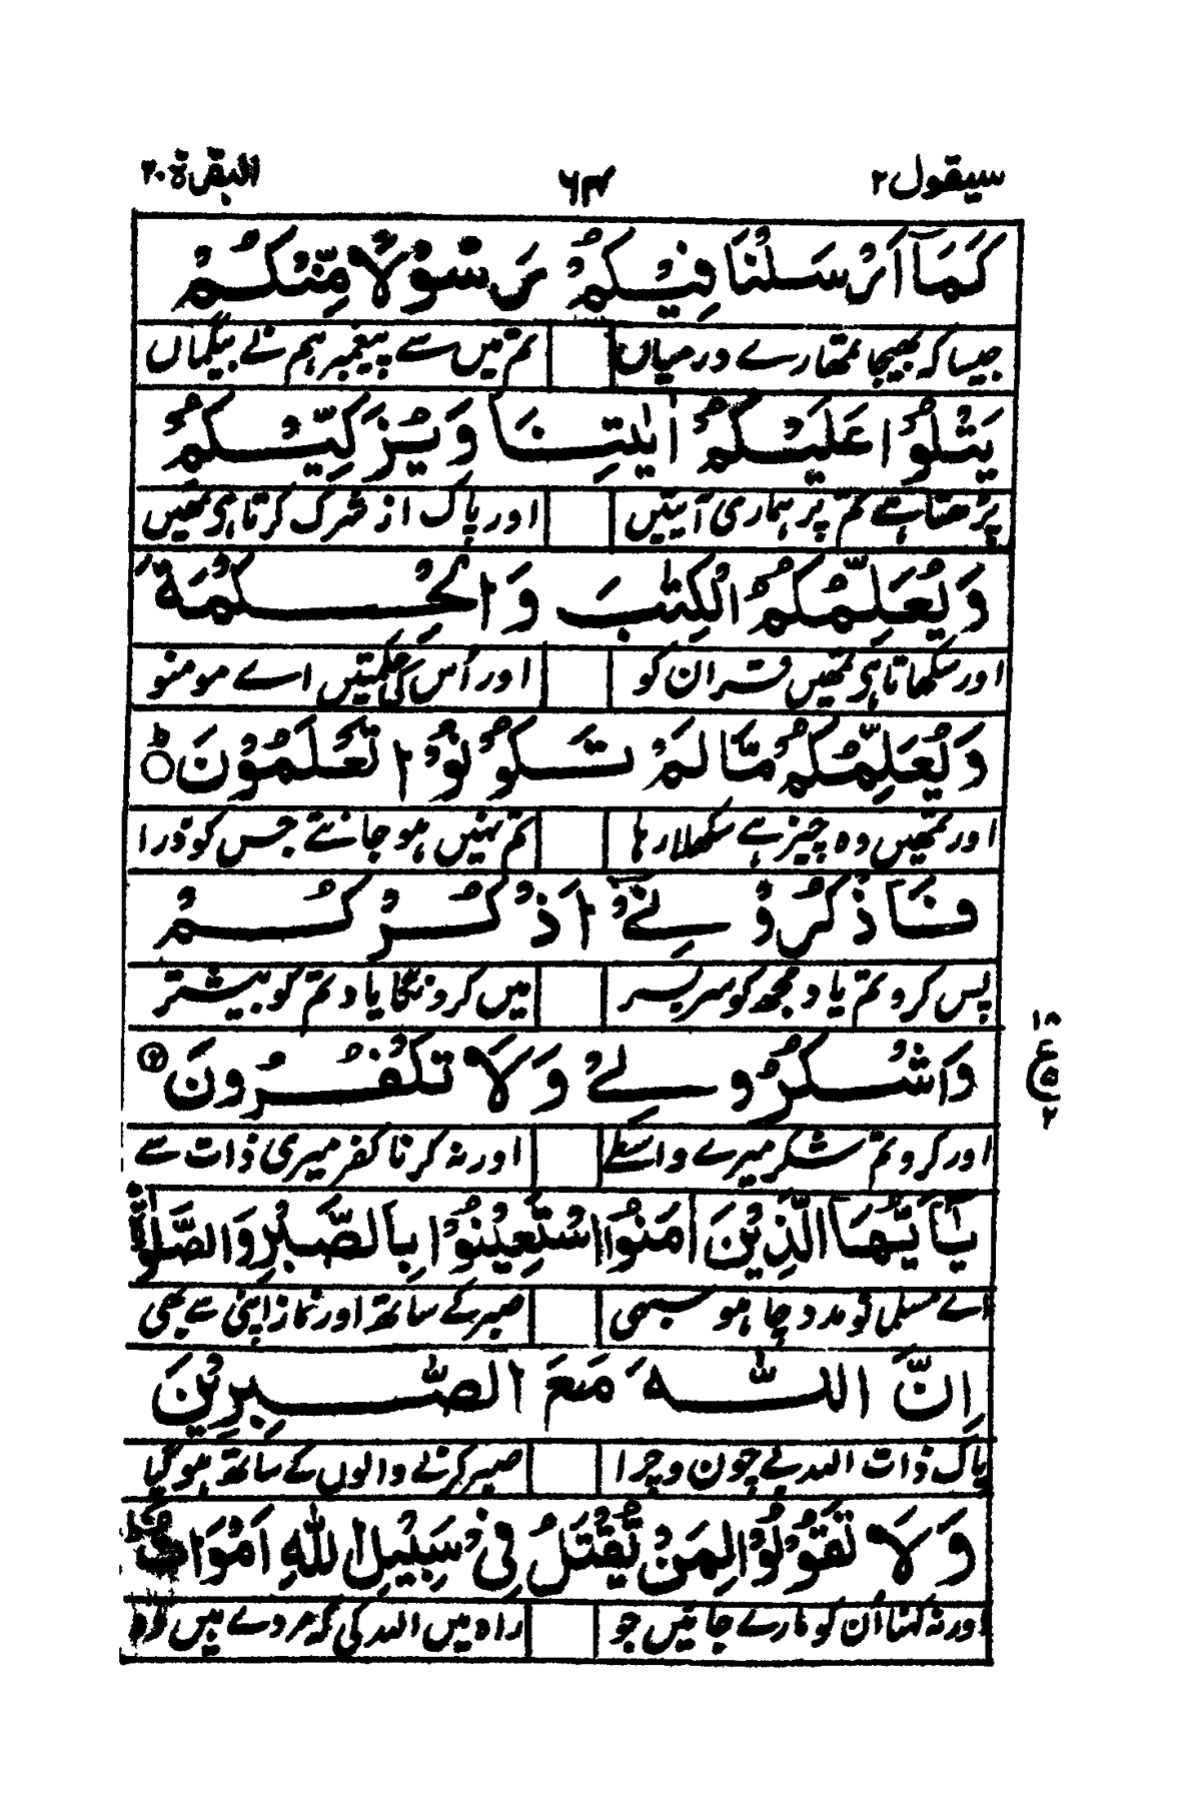 سیقول ۲ ۶۴ البقرة ۲۰
كَمَآ اَرْسَلْنَا فِيْكُمْ رَسُوْلًا مِّنْكُمْ
جیسا کہ بھیجا تمھارے درمیاں تم میں سے پیغمبر ہم نے بیگماں
يَتْلُوْا عَلَيْكُمْ اٰيٰتِنَا وَيُزَكِّيْكُمْ
پڑھتا ہے تم پر ہماری آیتیں اور پاک از شرک کرتا ہی تمھیں
وَيُعَلِّمُكُمُ الْكِتٰبَ وَالْحِكْمَةَ
اور سکھاتا ہی تمھیں قرآن کو اور اُس کی حکمتیں اے مومنو
وَيُعَلِّمُكُمْ مَّا لَمْ تَكُوْنُوْا تَعْلَمُوْنَ ط
اور تمھیں وہ چیز ہے سکھلا رہا تم نہیں ہو جانتے جس کو ذرا
فَاذْكُرُوْنِيْٓ اَذْكُرْكُمْ
پس کرو تم یاد مجھ کو سربسر میں کرونگا یاد تم کو بیشتر
وَاشْكُرُوْا لِيْ وَلَا تَكْفُرُوْنَ
اور کرو تم شکر میرے واسطے اور نہ کرنا کفر میری ذات سے
۱۸
ع
۵
۲
يٰٓاَيُّهَا الَّذِيْنَ اٰمَنُوا اسْتَعِيْنُوْا بِالصَّبْرِ وَالصَّلٰوةِ
اے مسلمانو مدد چاہو سبھی صبر کے ساتھ اور نماز اپنی سے بھی
اِنَّ اللّٰهَ مَعَ الصّٰبِرِيْنَ
پاک ذات اللہ بے چون و چرا صبر کرنے والوں کے ساتھ ہو گیا
وَلَا تَقُوْلُوْا لِمَنْ يُّقْتَلُ فِيْ سَبِيْلِ اللّٰهِ اَمْوَاتٌ
اور نہ کہنا اُن کو مارے جائیں جو راہ میں اللہ کی کہ مردے ہیں وہ